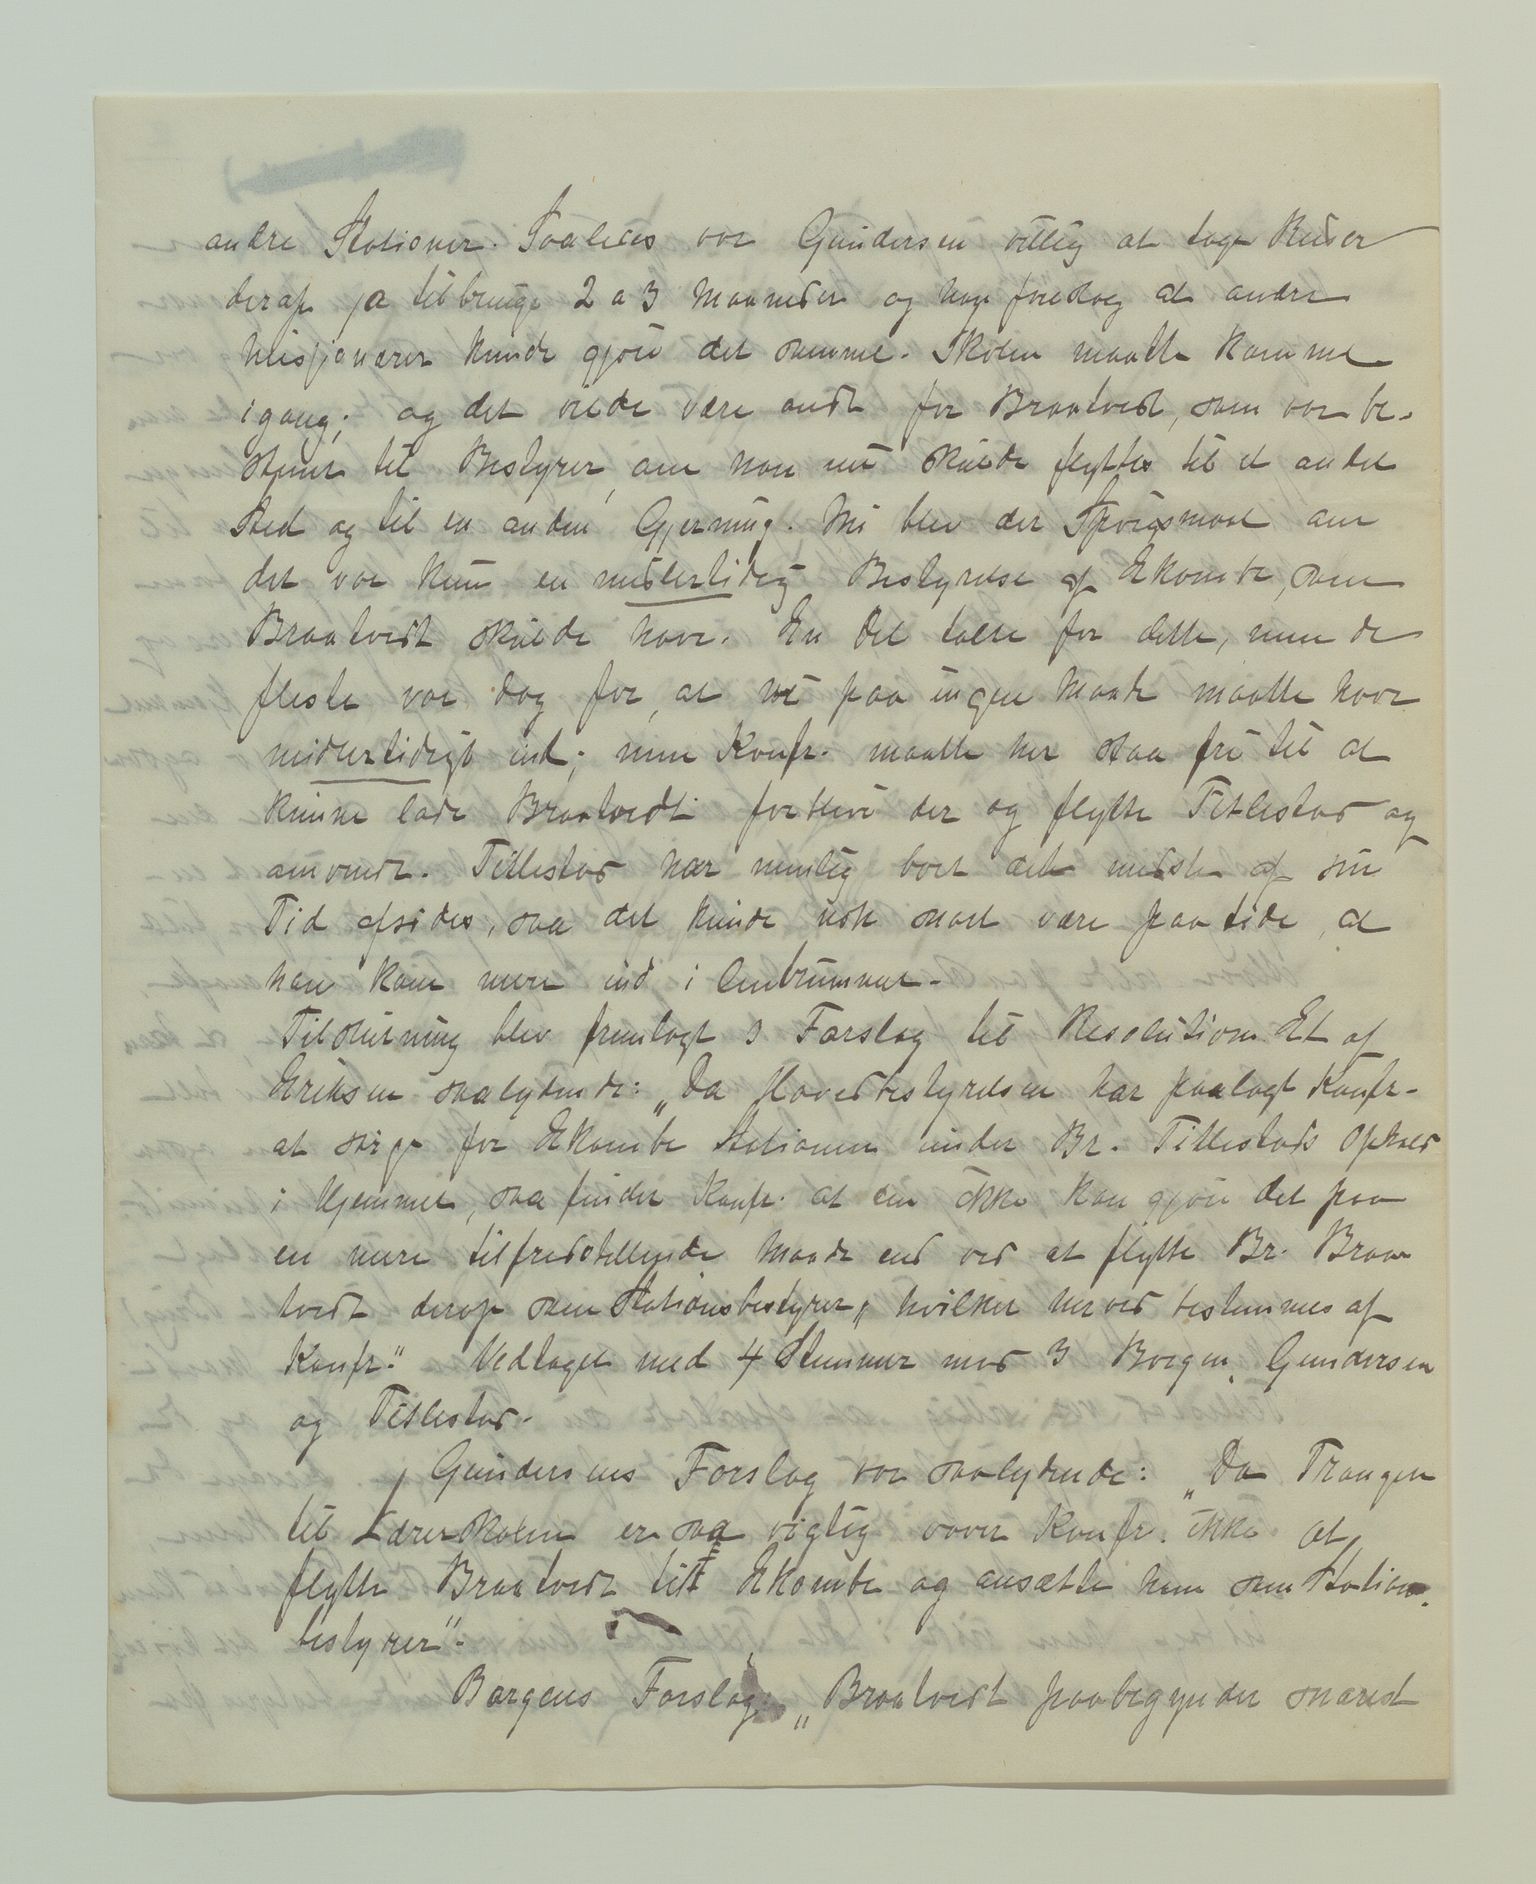 andre Stationer. Saaledes var Gundersen villig at tage Reiser
derop ja tilbringe 2 a 3 Maaneder og han foreslog at andre
Missjonærer kunde gjøre det samme. Skolen maatte komme
igang; og det vilde være ondt for Braatvedt, som var be-
stemt til Bestyrer, om han nu skulde flyttes til et andet
Sted og til en anden Gjerning. Nu blev der Spørgsmaal om
det var kun en midlertidig Bestyrelse af Ekombe, som
Braatvedt skulde have. En Del talte for dette, men de
fleste var dog for, at vi paa ingen Maade maatte have
midlertidigt ind; men Konfr. maatte her staa fri til at
kunne lade Braatvedt forblive der og flytte Titlestad og
omvendt. Titlestad har nemlig boet det meste af sin
Tid afsides, saa det kunde nok snart være paa tide, at
han kom mere ind i Centrummet.
Tilslutning blev fremlagt 3 Forslag til Resolution. Et af
Eriksen saalydende: „Da Hovedbestyrelsen har paalagt Konfr.
at sørge for Ekombe Stationen under Br. Titlestads Ophold
i Hjemmet, saa finder Konfr. at den ikke kan gjøre det paa
en mere tilfredsstillende Maade end ved at flytte Br. Braat
tvedt derop som Stationsbestyrer, hvilket herved bestemmes af
Konfr." Vedtaget med 4 Stemmer mod 3 Borgen, Gundersen
og Titlestad.
Gundersens Forslag var saalydende: „Da Trangen
til Lærerskolen er saa vigtig vover Konfr. ikke at
flytte Braatvedt til Ekombe og ansætte ham som Stations.
bestyrer".
Borgens Forslag: „Braatvedt paabegynder snarest